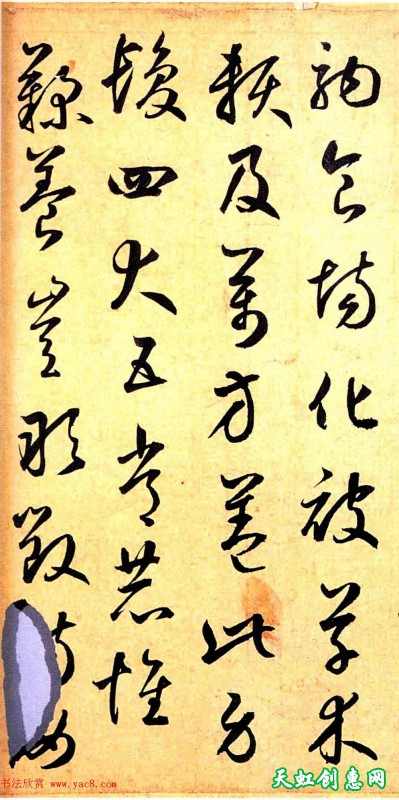 駒食場化被草木
賴及萬方蓋此身
髮四大五常恭惟
鞠養豈敢毀女
书法欣赏 www.yac8.com
天虹创惠网